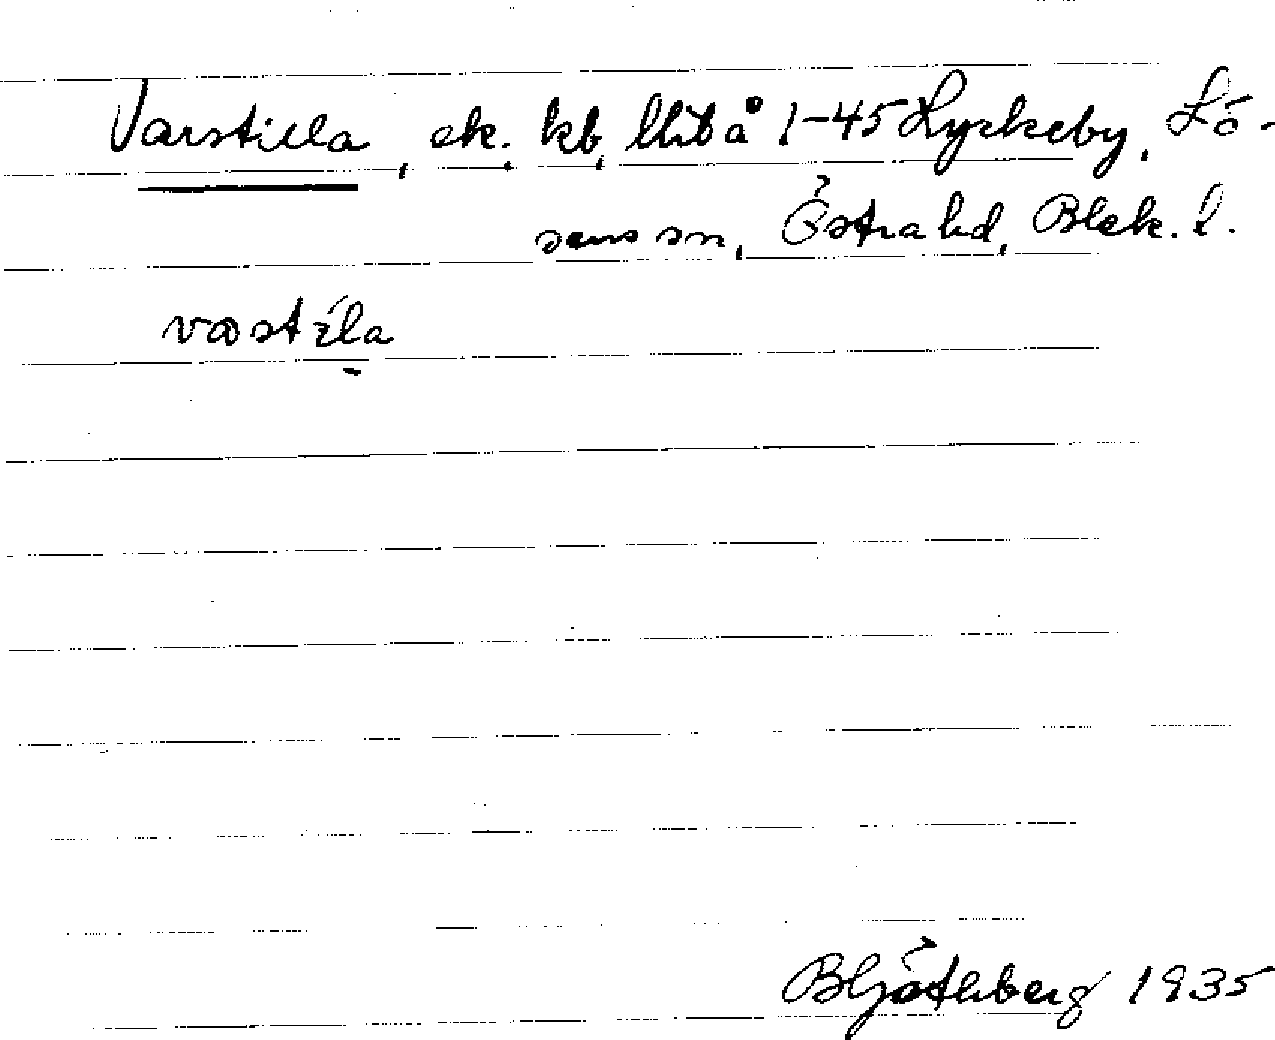 Varstilla, ek. kb, lhtå 1-45 Lyckeby, Lö-
sens sn, Östra hd, Blek. l.
vastila
B Götherberg 1935